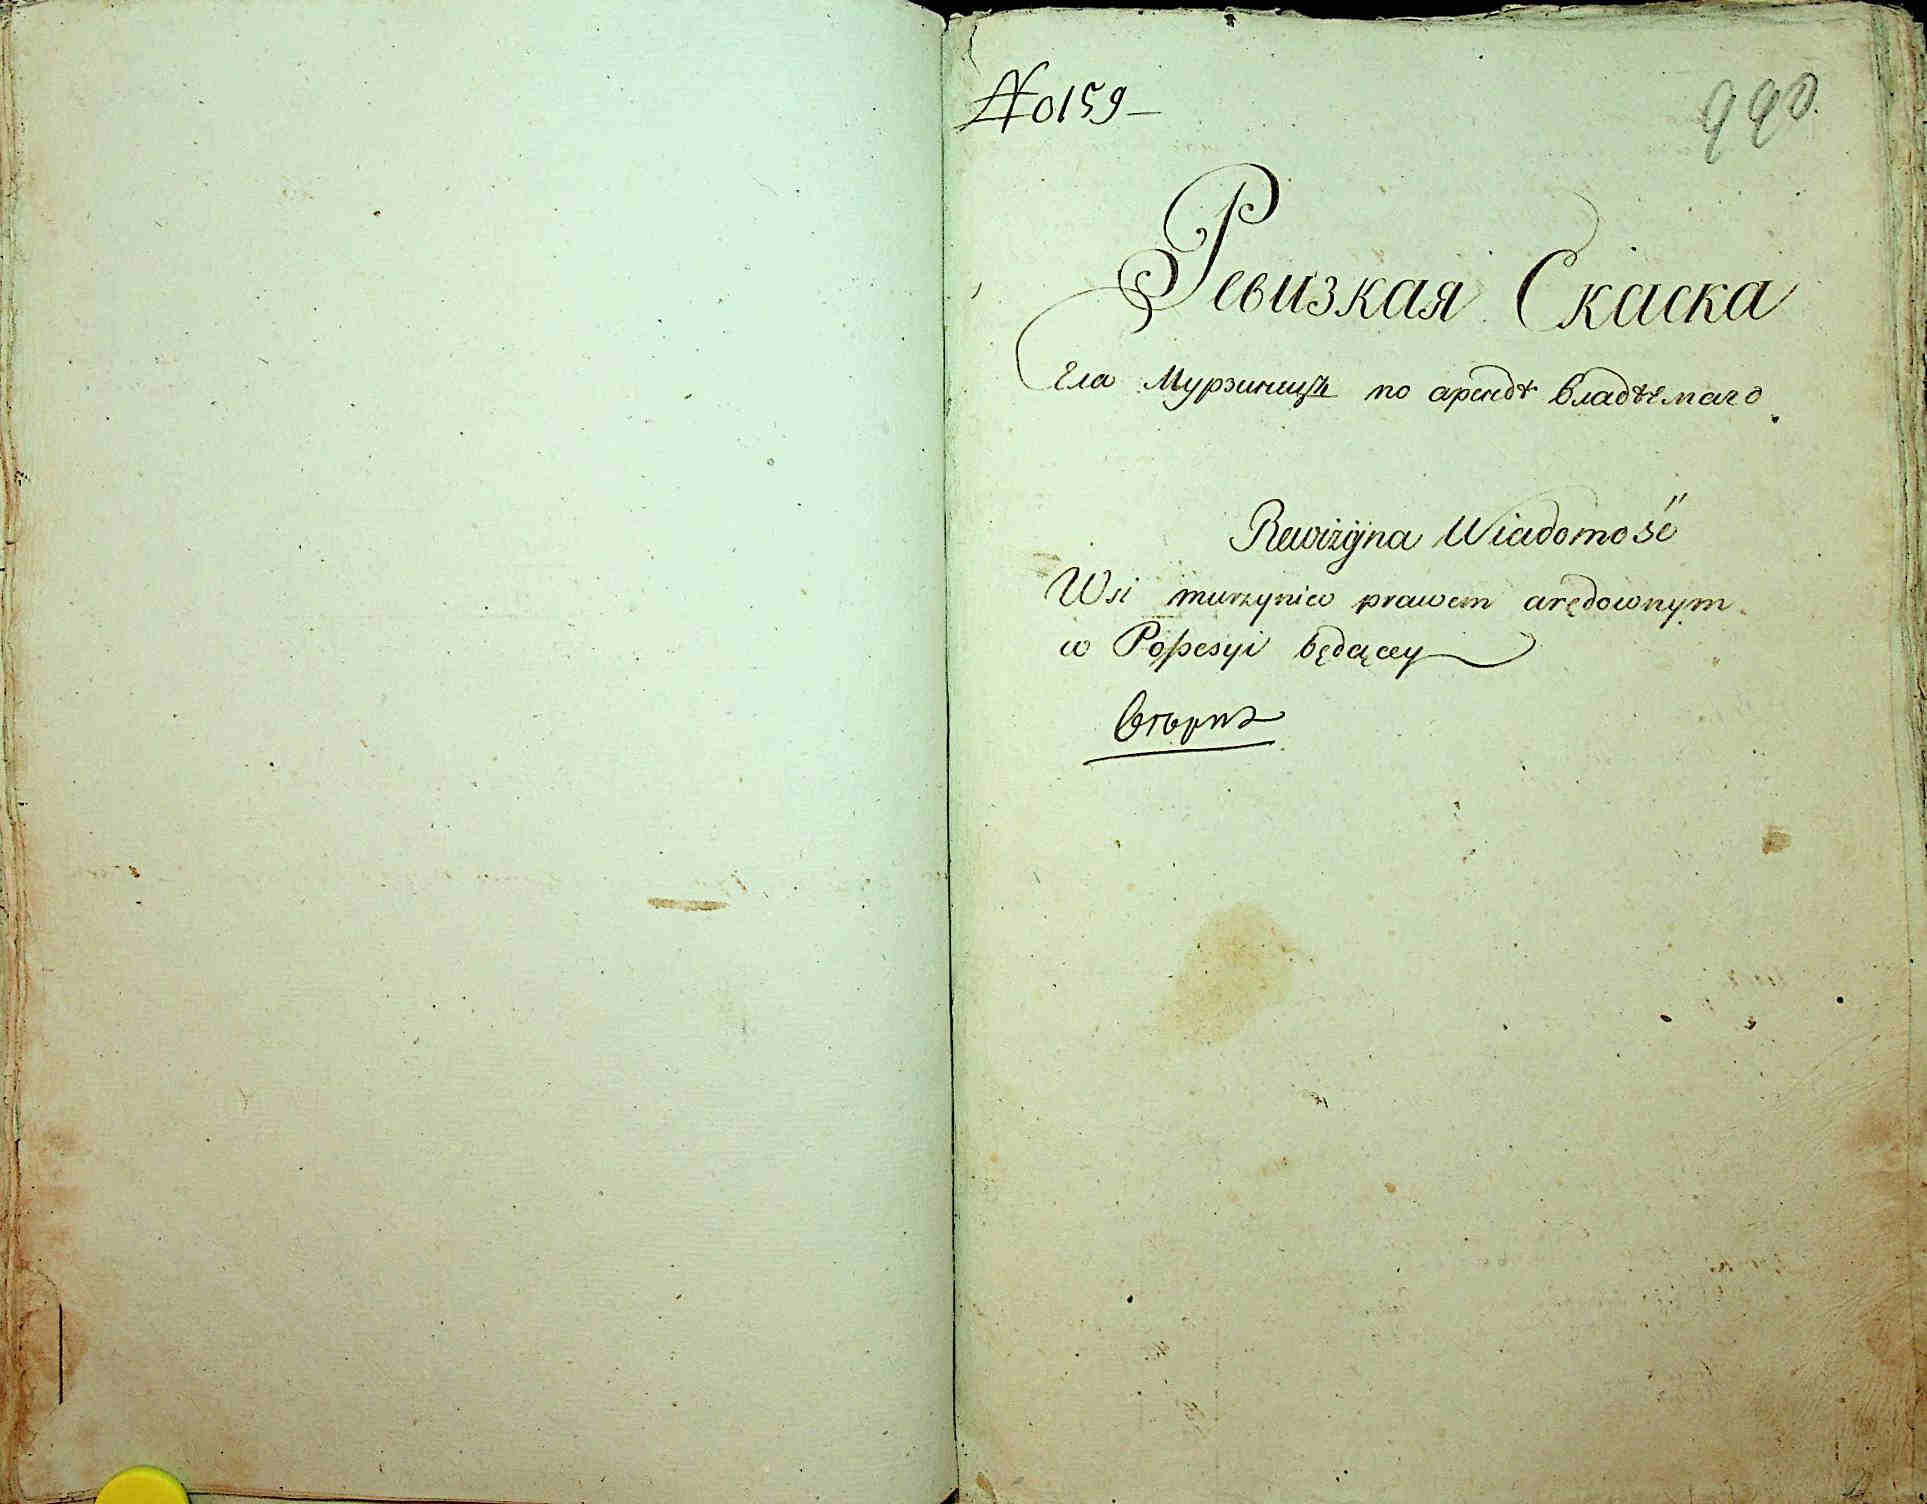 № 159
990.
Ревизкая Скаска
Села Мурзинецъ по арендѣ владѣемаго
Rewizyjna Wiadomość
Wsi murzyniec prawem arędownym
w Possesyi będącey